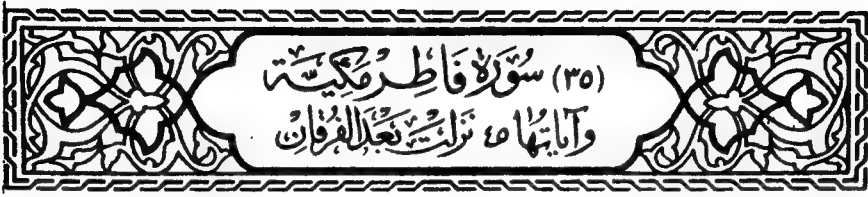 (٣٥) سُورَة فَاطِر مَكِيَّة
وآيَاتهَا ٤٥ نزلَت بَعدَ الفُرقَانِ